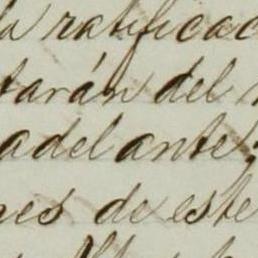 la ratificac
tarán del
adelante,
nes de este